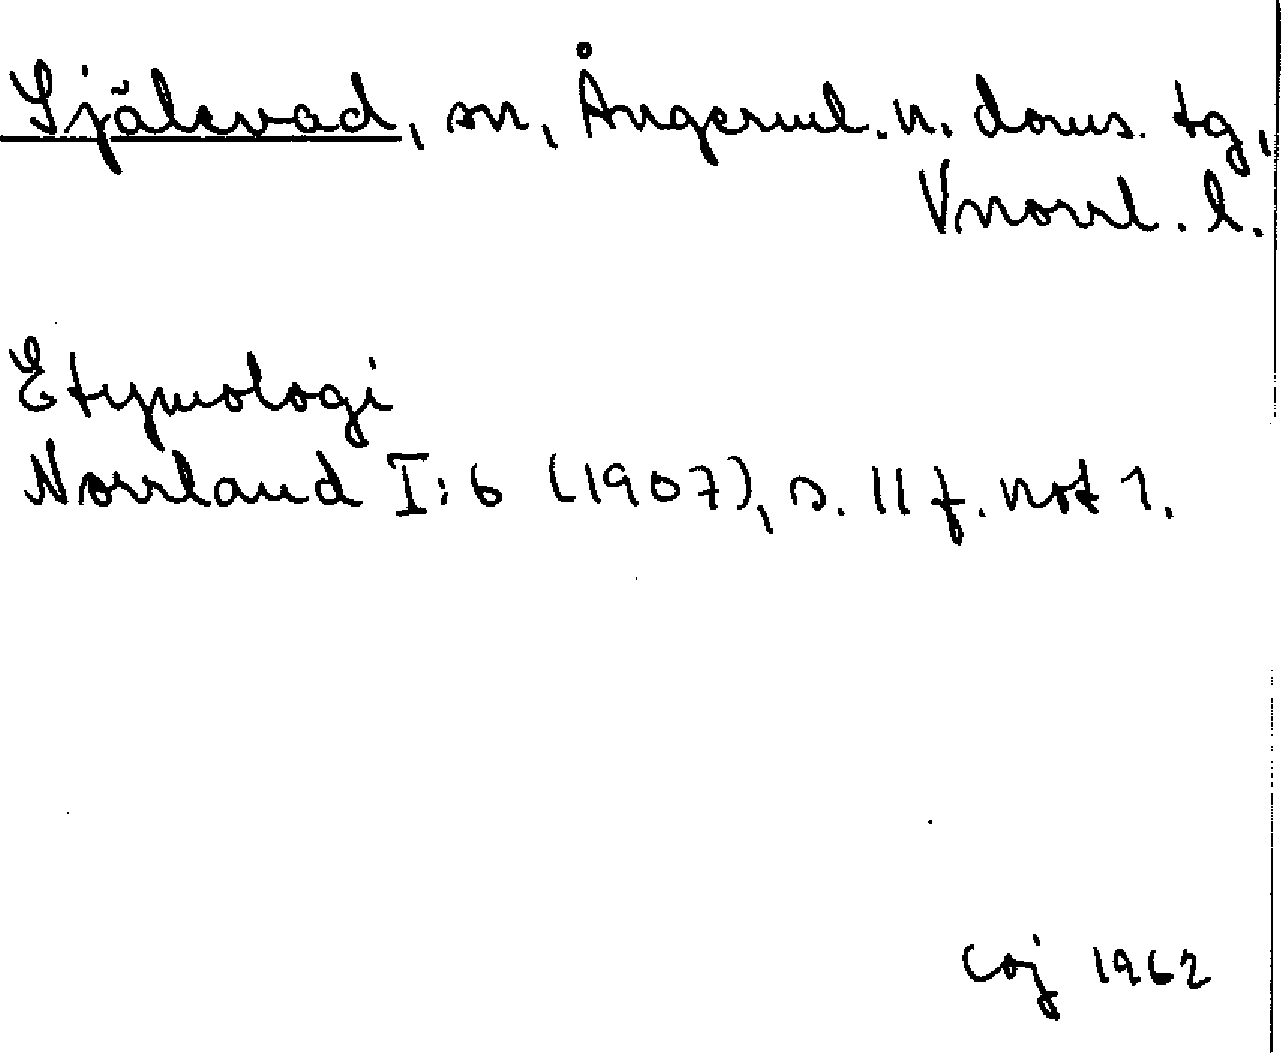 Själevad, sn, Ångerml. n. doms. tg,
Vnorrl. l.
Etymologi
Norrland I:6 (1907), s. 11 f. not 1.
Coj 1962